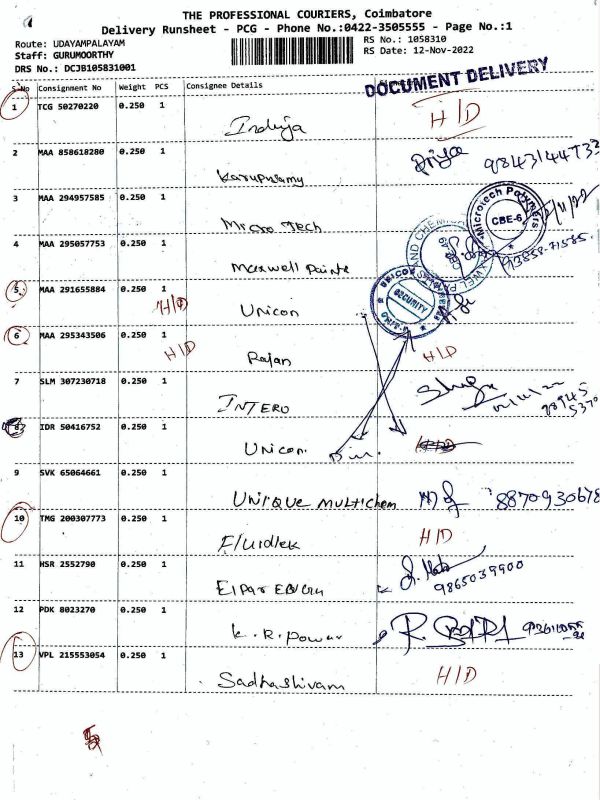 THE PROFESSIONAL COURIERS, Coimbatore
Delivery Runsheet - PCG - Phone No.:0422-3505555 - Page No.:1
Route: UDAYAMPALAYAM
RS No.: 1058310
Staff: GURUMOORTHY
RS Date: 12-Nov-2022
DRS No.: DCJB105831001
DOCUMENT DELIVERY
S.No Consignment No Weight PCS Consignee Details
1 TCG 50270220 0.250 1 H/D
Induja
2 MAA 858618280 0.250 1 Priya
Karupusamy
3 MAA 294957585 0.250 1
Micro Tech
Microtech Polymers
CBE-6
4 MAA 295057753 0.250 1
Maxwell Painte
5 MAA 291655884 0.250 1 H/D
Unicon
UNICON
SECURITY
6 MAA 295343506 0.250 1 H/D
Rajan H/D
7 SLM 307230718 0.250 1
INTERO
8 IDR 50416752 0.250 1
Unicon.
9 SVK 65064661 0.250 1
UNIQUE MULTICHEM 8870930678
10 TMG 200307773 0.250 1 H/D
Fluidtek
11 HSR 2552790 0.250 1
9865039900
12 PDK 8023270 0.250 1
K.R. Power
13 VPL 215553054 0.250 1 H/D
Sadhashivam